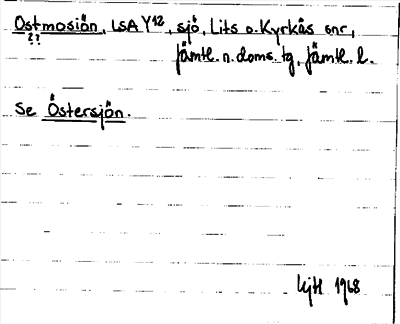 Ostmosiön, LSA Y12, sjö, Lits o. Kyrkås snr,
??
Jämtl. n. doms. tg, Jämtl. l.
Se Östersjön.
1968